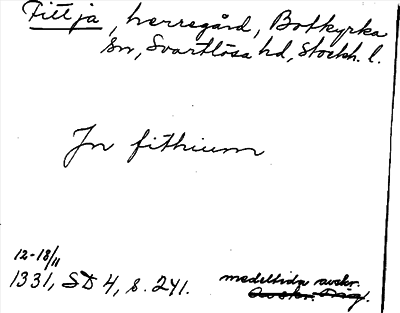 Fittja, herregård, Botkyrka
sn, Svartlösa hd, Stockh. l.
Jn fithium
12-18/11
1331, SD 4, s. 241.
medeltida avskr.
Avskr.